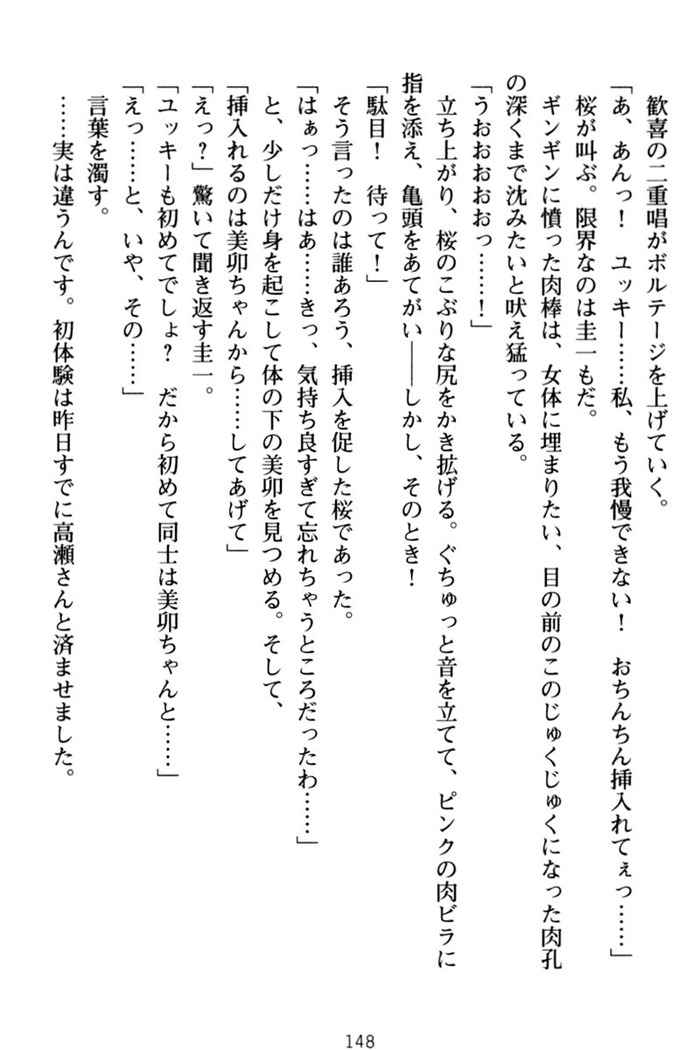 歓喜の二重唱がボルテージを上げていく。
「あ、あんっ！　ユッキー……私、もう我慢できない！　おちんちん挿入れてぇっ……」
桜が叫ぶ。限界なのは圭一もだ。
ギンギンに憤った肉棒は、女体に埋まりたい、目の前のこのじゅくじゅくになった肉孔
の深くまで沈みたいと吠え猛っている。
「うおおおおおっ……！」
立ち上がり、桜のこぶりな尻をかき拡げる。ぐちゅっと音を立てて、ピンクの肉ビラに
指を添え、亀頭をあてがい――しかし、そのとき！
「駄目！　待って！」
そう言ったのは誰あろう、挿入を促した桜であった。
「はぁっ……はあ……きっ、気持ち良すぎて忘れちゃうところだったわ……」
と、少しだけ身を起こして体の下の美卯を見つめる。そして、
「挿入れるのは美卯ちゃんから……してあげて」
「えっ？」驚いて聞き返す圭一。
「ユッキーも初めてでしょ？　だから初めて同士は美卯ちゃんと……」
「えっ……と、いや、その……」
言葉を濁す。
……実は違うんです。初体験は昨日すでに高瀬さんと済ませました。
148